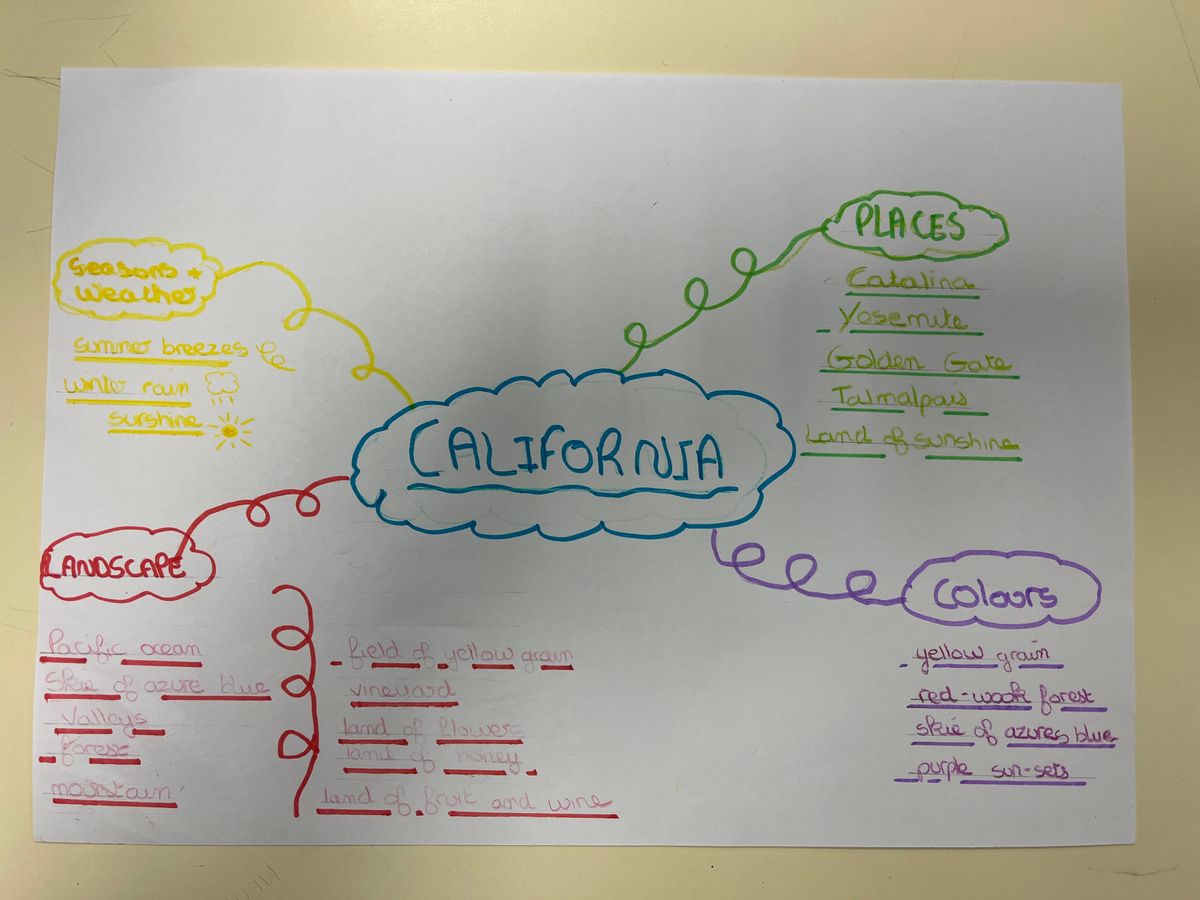 CALIFORNIA
Seasons +
Weather
summer breezes
winter rain
sunshine
PLACES
Catalina
Yosemite
Golden Gate
Talmalpais
Land of sunshine
LANDSCAPE
Pacific ocean
Skie of azure blue
Valleys
forest
mountain
field of yellow grain
vineyard
land of flowers
land of honey
land of fruit and wine
Colours
yellow grain
red-wook forest
skie of azures blue
purple sun-sets